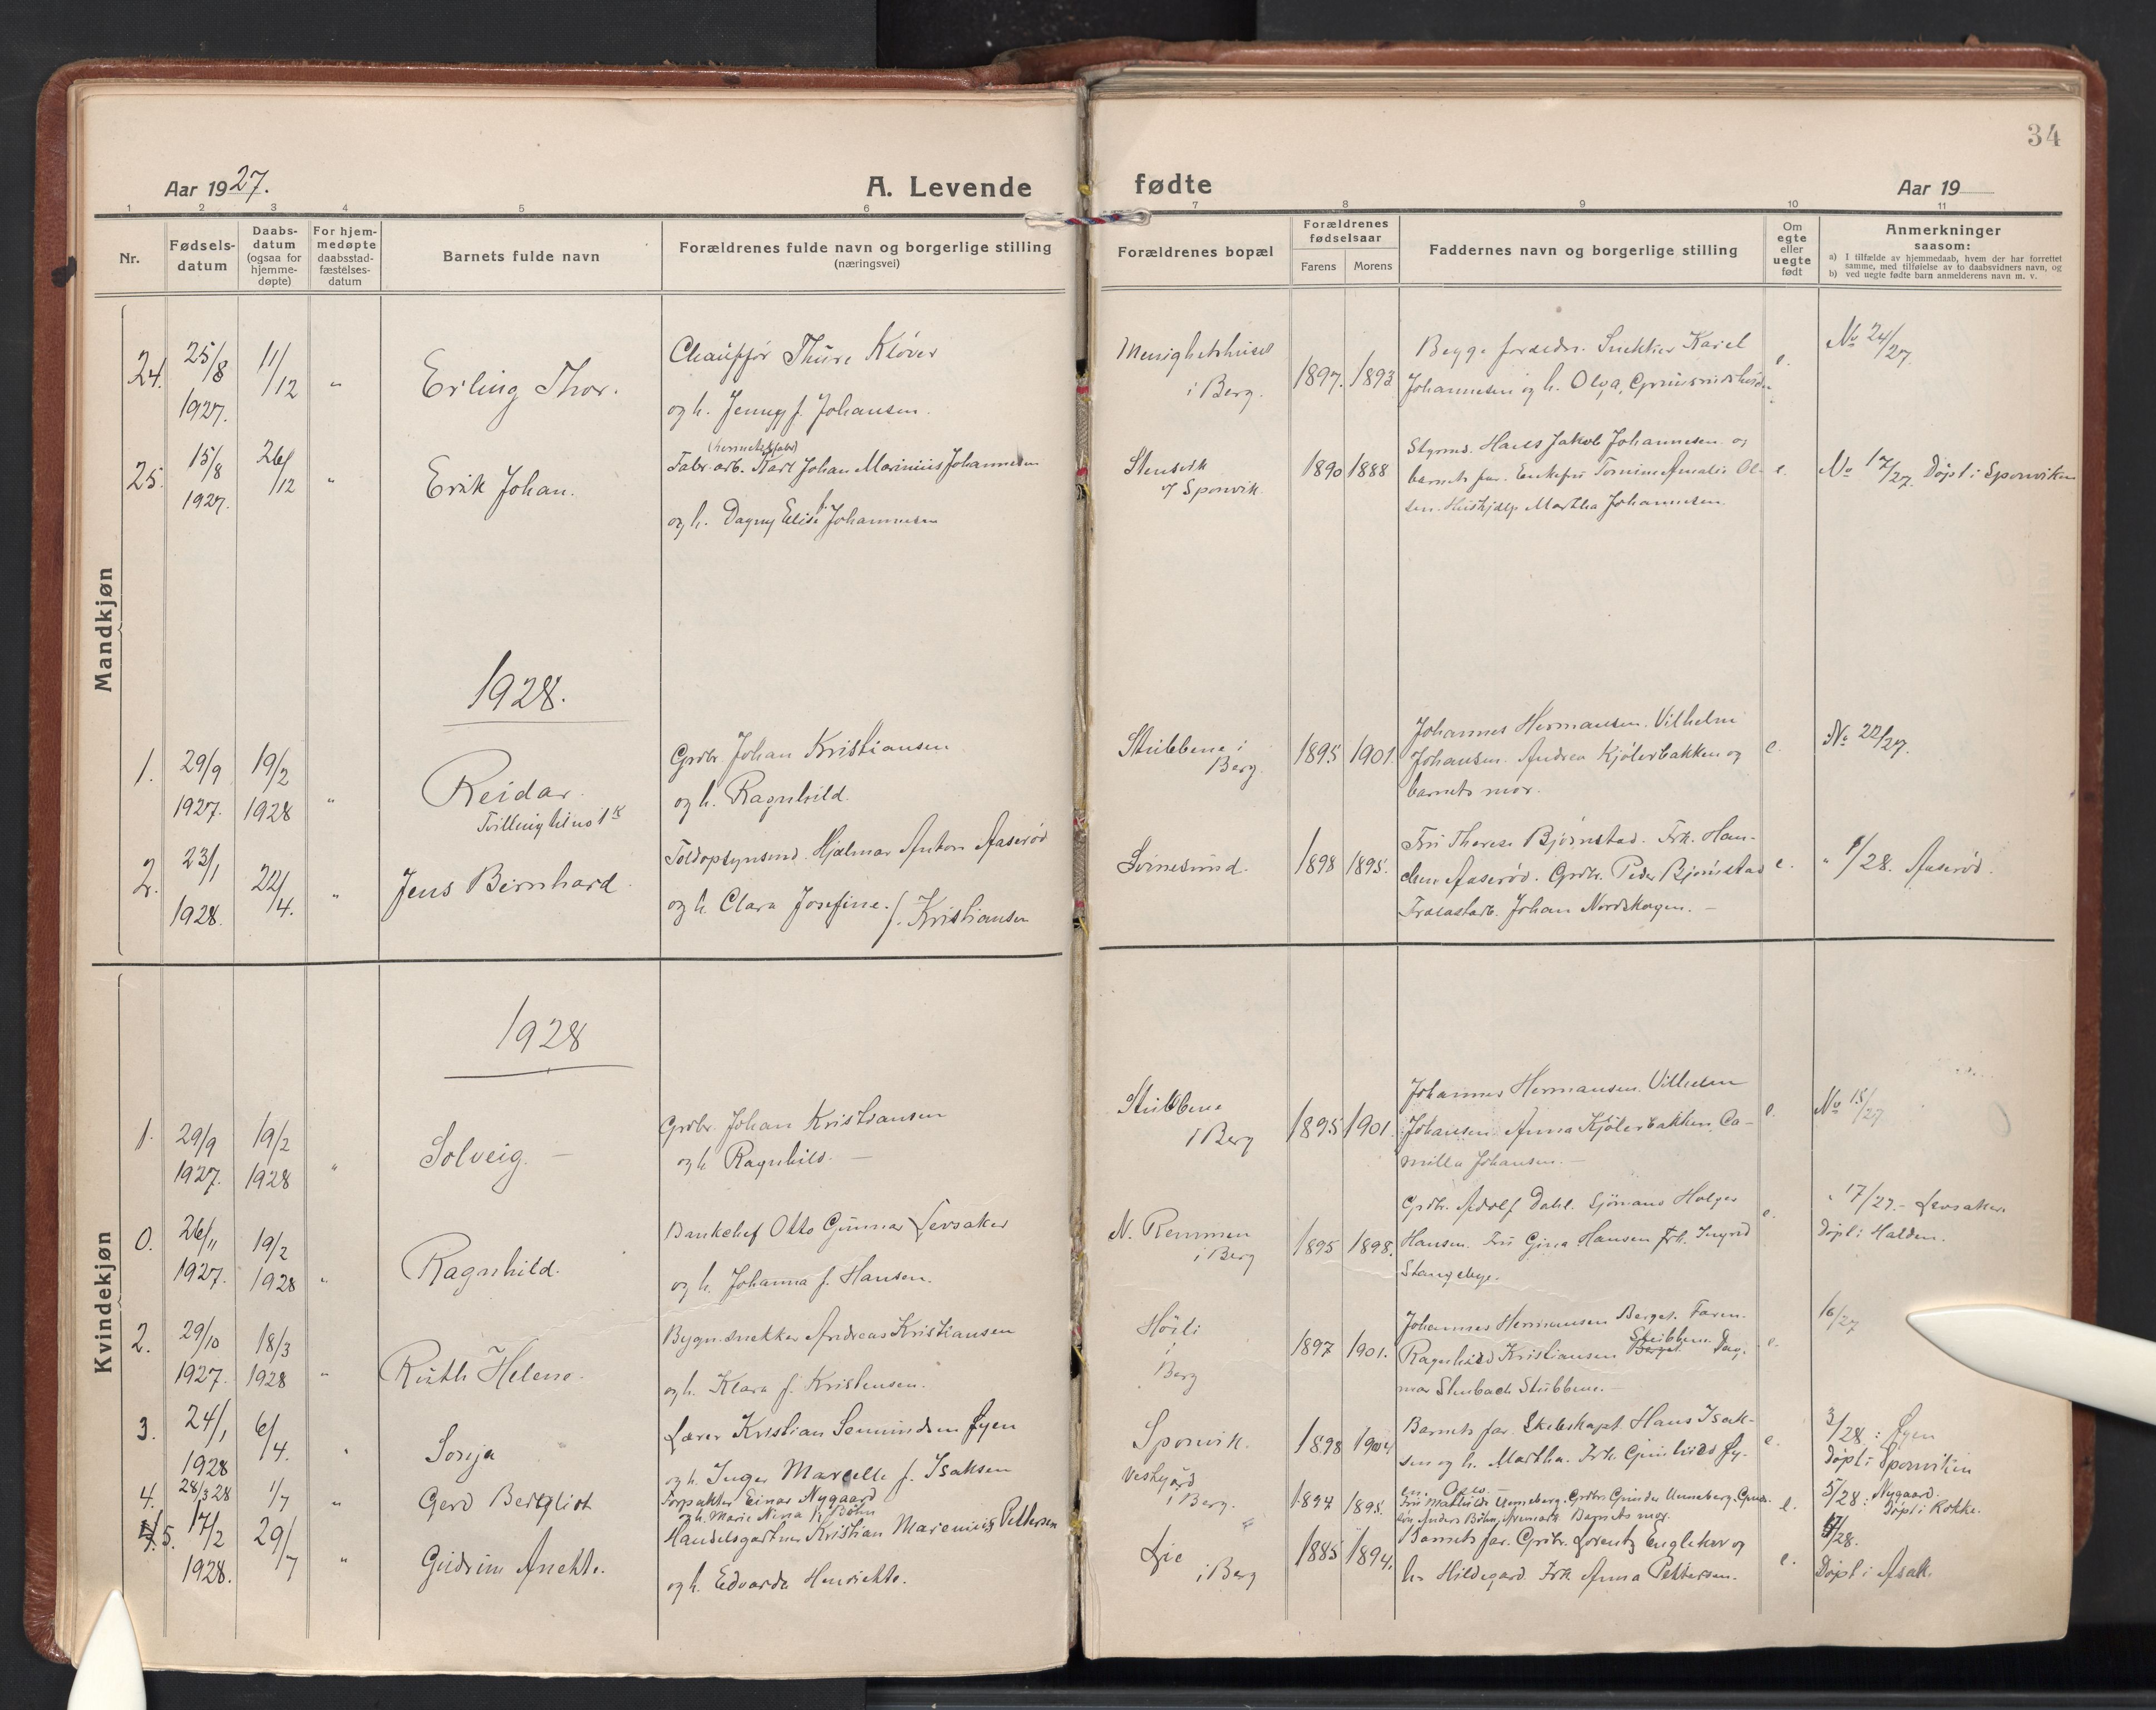 34
Aar 1927.
A. Levende
fødte
Aar 19
1 2 3 4 5 6 7 8 9 10 11
Nr.
Fødsels-
datum
Daabs-
datum
(ogsaa for
hjemme-
døpte)
For hjem-
medøpte
daabsstad-
fæstelses-
datum
Barnets fulde navn
Forældrenes fulde navn og borgerlige stilling
(næringsvei)
Forældrenes bopæl
Forældrenes
fødselsaar
Farens
Morens
Faddernes navn og borgerlige stilling
Om
egte
eller
uegte
født
Anmerkninger
saasom:
a) I tilfælde av hjemmedaab, hvem der har forrettet
samme, med tilføielse av to daabsvidners navn, og
b) ved uegte fødte barn anmelderens navn m. v.
Mandkjøn
24. 25/8 1927. 11/12 "
Erling Thor.
Chauffør Thure Kløver
og h. Jenny f. Johansen.
Menighetshuset
i Berg.
1897. 1893
Begge foreldr. Snekker Karel
Johannesen og h. Olga,
e.
No 24/27.
25. 15/8 1927. 26/12 "
Erik Johan.
(hermetikfabr)
Fabr. arb. Karl Johan Marinius Johannesen
og h. Dagny Elise f. Johannesen
Stenseth
Sponvik.
1890 1888
Styrmd. Hans Jakob Johannesen og
barnets far. Enkefru Amalie Ol-
sen. Hushjælp Martha Johannesen.
e.
No 17/27. Døpt i Sponviken
1928.
1. 29/9 1927. 19/2 1928 "
Reidar.
Tvilling til no 1 K
Grdbr. Johan Kristiansen
og h. Ragnhild.
Stubbene i
Berg.
1895 1901.
Johannes Hermansen. Vilhelm
Johansen. Andrea Kjølerbakken og
barnets mor.
e.
No 22/27.
2. 23/1 1928. 22/4. "
Jens Bernhard.
Toldopsynsmd. Hjalmar Anton Aaserød
og h. Clara Josefine. f. Kristiansen
Svinesund.
1898 1895.
Fru Therese Bjørnstad. Frk. Han-
chen Aaserød. Grdbr. Peder Bjørnstad
Johan Nordskogen. –
e.
" 1/28. Aaserød.
Kvindekjøn
1928
1. 29/9 1927. 19/2 1928 "
Solveig. –
Grdbr. Johan Kristiansen
og h. Ragnhild. –
Stubbene
i Berg
1895 1901.
Johannes Hermansen. Vilhelm
Johansen. Anna Kjølerbakken, Ca-
milla Johansen. –
e.
No 15/27
0. 26/11 1927. 19/2 1928 "
Ragnhild.
Bankchef Otto Gunnar Levsaker
og h. Johanna f. Hansen.
N. Remmen
i Berg
1895 1898.
Grdbr. Adolf Dahl. Sjømand Holger
Hansen. Fru Gina Hansen Frk. Ingrid
Stangebye.
e.
" 17/27. – Levsaker.
Døpt i Halden.
2. 29/10 1927. 18/3 1928 "
Ruth Helene.
Bygn.snekker Andreas Kristiansen
og h. Klara f. Kristensen.
Høili
i
Berg
1897 1901.
Johannes Hermansen Berget. Faren.
Stubbene.
Ragnhild Kristiansen Berget. Dag-
mar Stubbene. –
e.
16/27
3. 24/1 1928 6/4. "
Sonja
Lærer Kristian Semundsen Øyen
og h. Inger Marcelle f. Isaksen
Sponvik.
1898 1904
Barnets far. Skibskapt. Hans Isak-
sen og h. Martha. Frk. Gunhild Øy-
en. Oslo. –
e.
3/28: Øyen
Døpt i Sponviken
4. 28/3 28 1/7 "
Gerd Bergliot
Forpakter Einar Nygaard
og h. Marie Nina f. Bøhn
Vestgård
i Berg.
1894 1895.
Fru Mathilde Unneberg. Grdbr. Gunder Unneberg.
Anders Bøhn, Aremark Barnets mor.
e.
5/28: Nygaard.
Døpt i Rokke.
4. 5. 17/2 1928. 29/7 "
Gudrun Anette.
Handelsgartner Kristian Marenius Pettersen
og h. Edvarda Henriette.
Lie
i Berg
1885 1894.
Barnets far. Grdbr. Lorentz Engleker og
h. Hildegard. Frk. Anna Pettersen.
e.
/28.
Døpt i Asak.